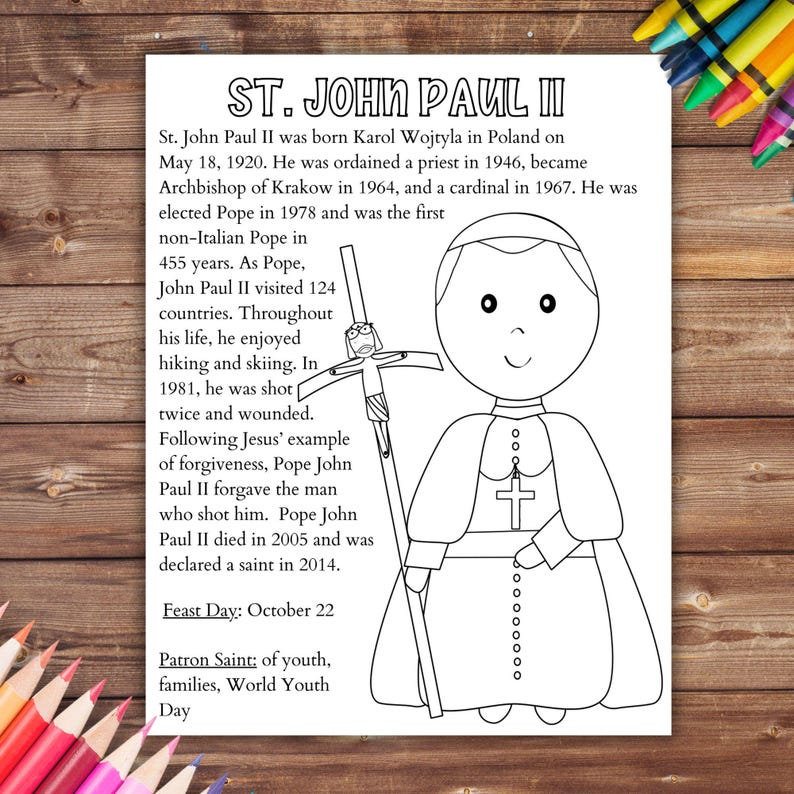 ST. JOHN PAUL II
St. John Paul II was born Karol Wojtyla in Poland on
May 18, 1920. He was ordained a priest in 1946, became
Archbishop of Krakow in 1964, and a cardinal in 1967. He was
elected Pope in 1978 and was the first
non-Italian Pope in
455 years. As Pope,
John Paul II visited 124
countries. Throughout
his life, he enjoyed
hiking and skiing. In
1981, he was shot
twice and wounded.
Following Jesus' example
of forgiveness, Pope John
Paul II forgave the man
who shot him. Pope John
Paul II died in 2005 and was
declared a saint in 2014.
Feast Day: October 22
Patron Saint: of youth,
families, World Youth
Day